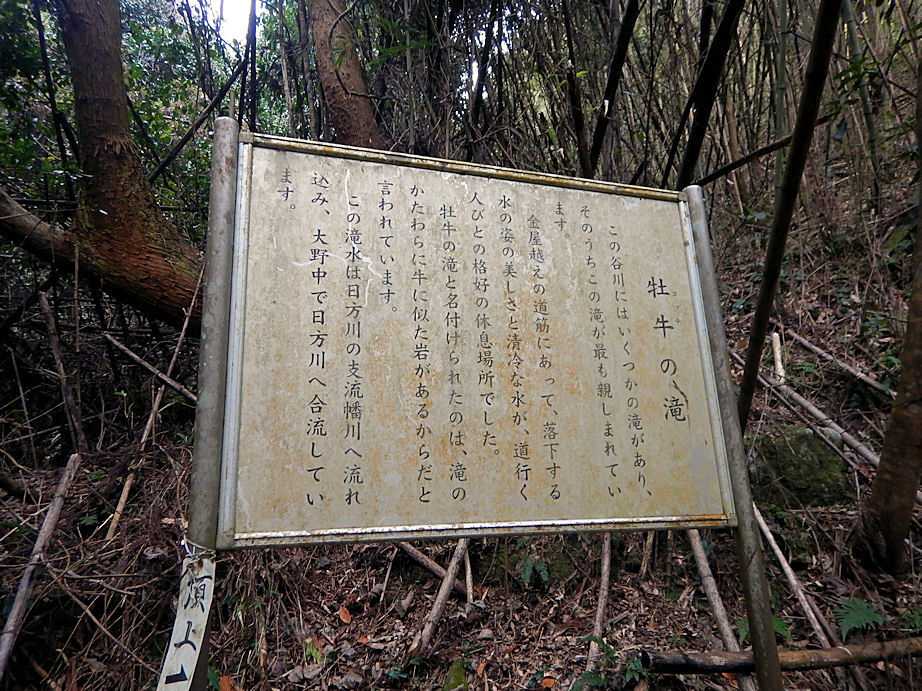 牡牛の滝
この谷川にはいくつかの滝があり、
そのうちこの滝が最も親しまれてい
ます。
金屋越えの道筋にあって、落下する
水の姿の美しさと清冷な水が、道行く
人びとの格好の休息場所でした。
牡牛の滝と名付けられたのは、滝の
かたわらに牛に似た岩があるからだと
言われています。
この滝水は日方川の支流幡川へ流れ
込み、大野中で日方川へ合流してい
ます。
頂上